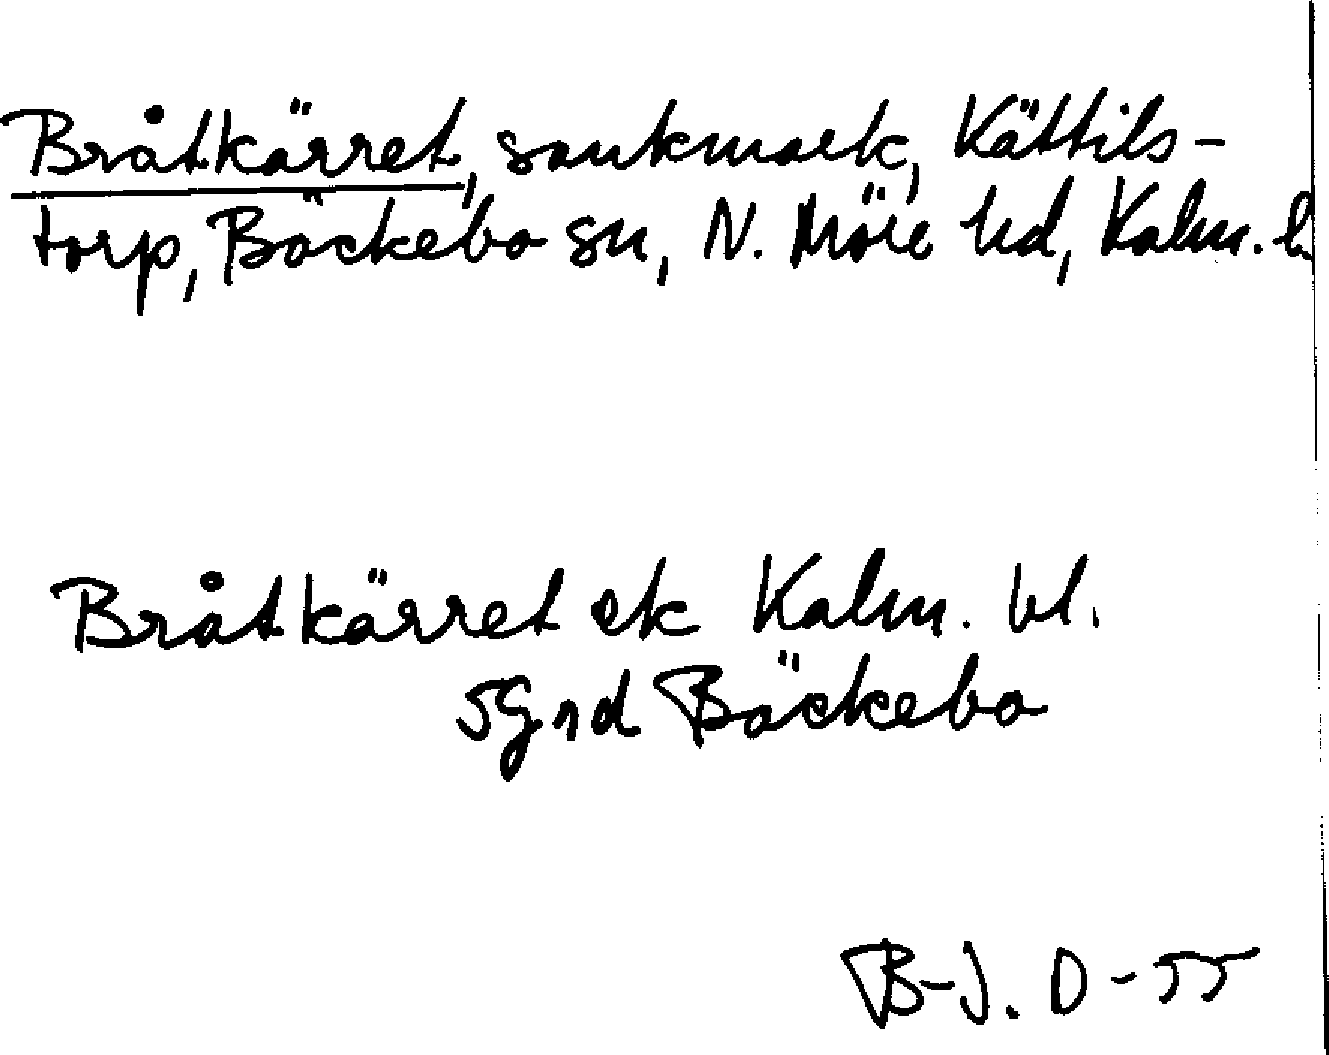 Bråtkärret, sankmark, Kättils-
torp, Bäckebo sn, N. Möre hd, Kalm. l.
Bråtkärret ek Kalm. bl.
5G nd Bäckebo
B-J. D-55